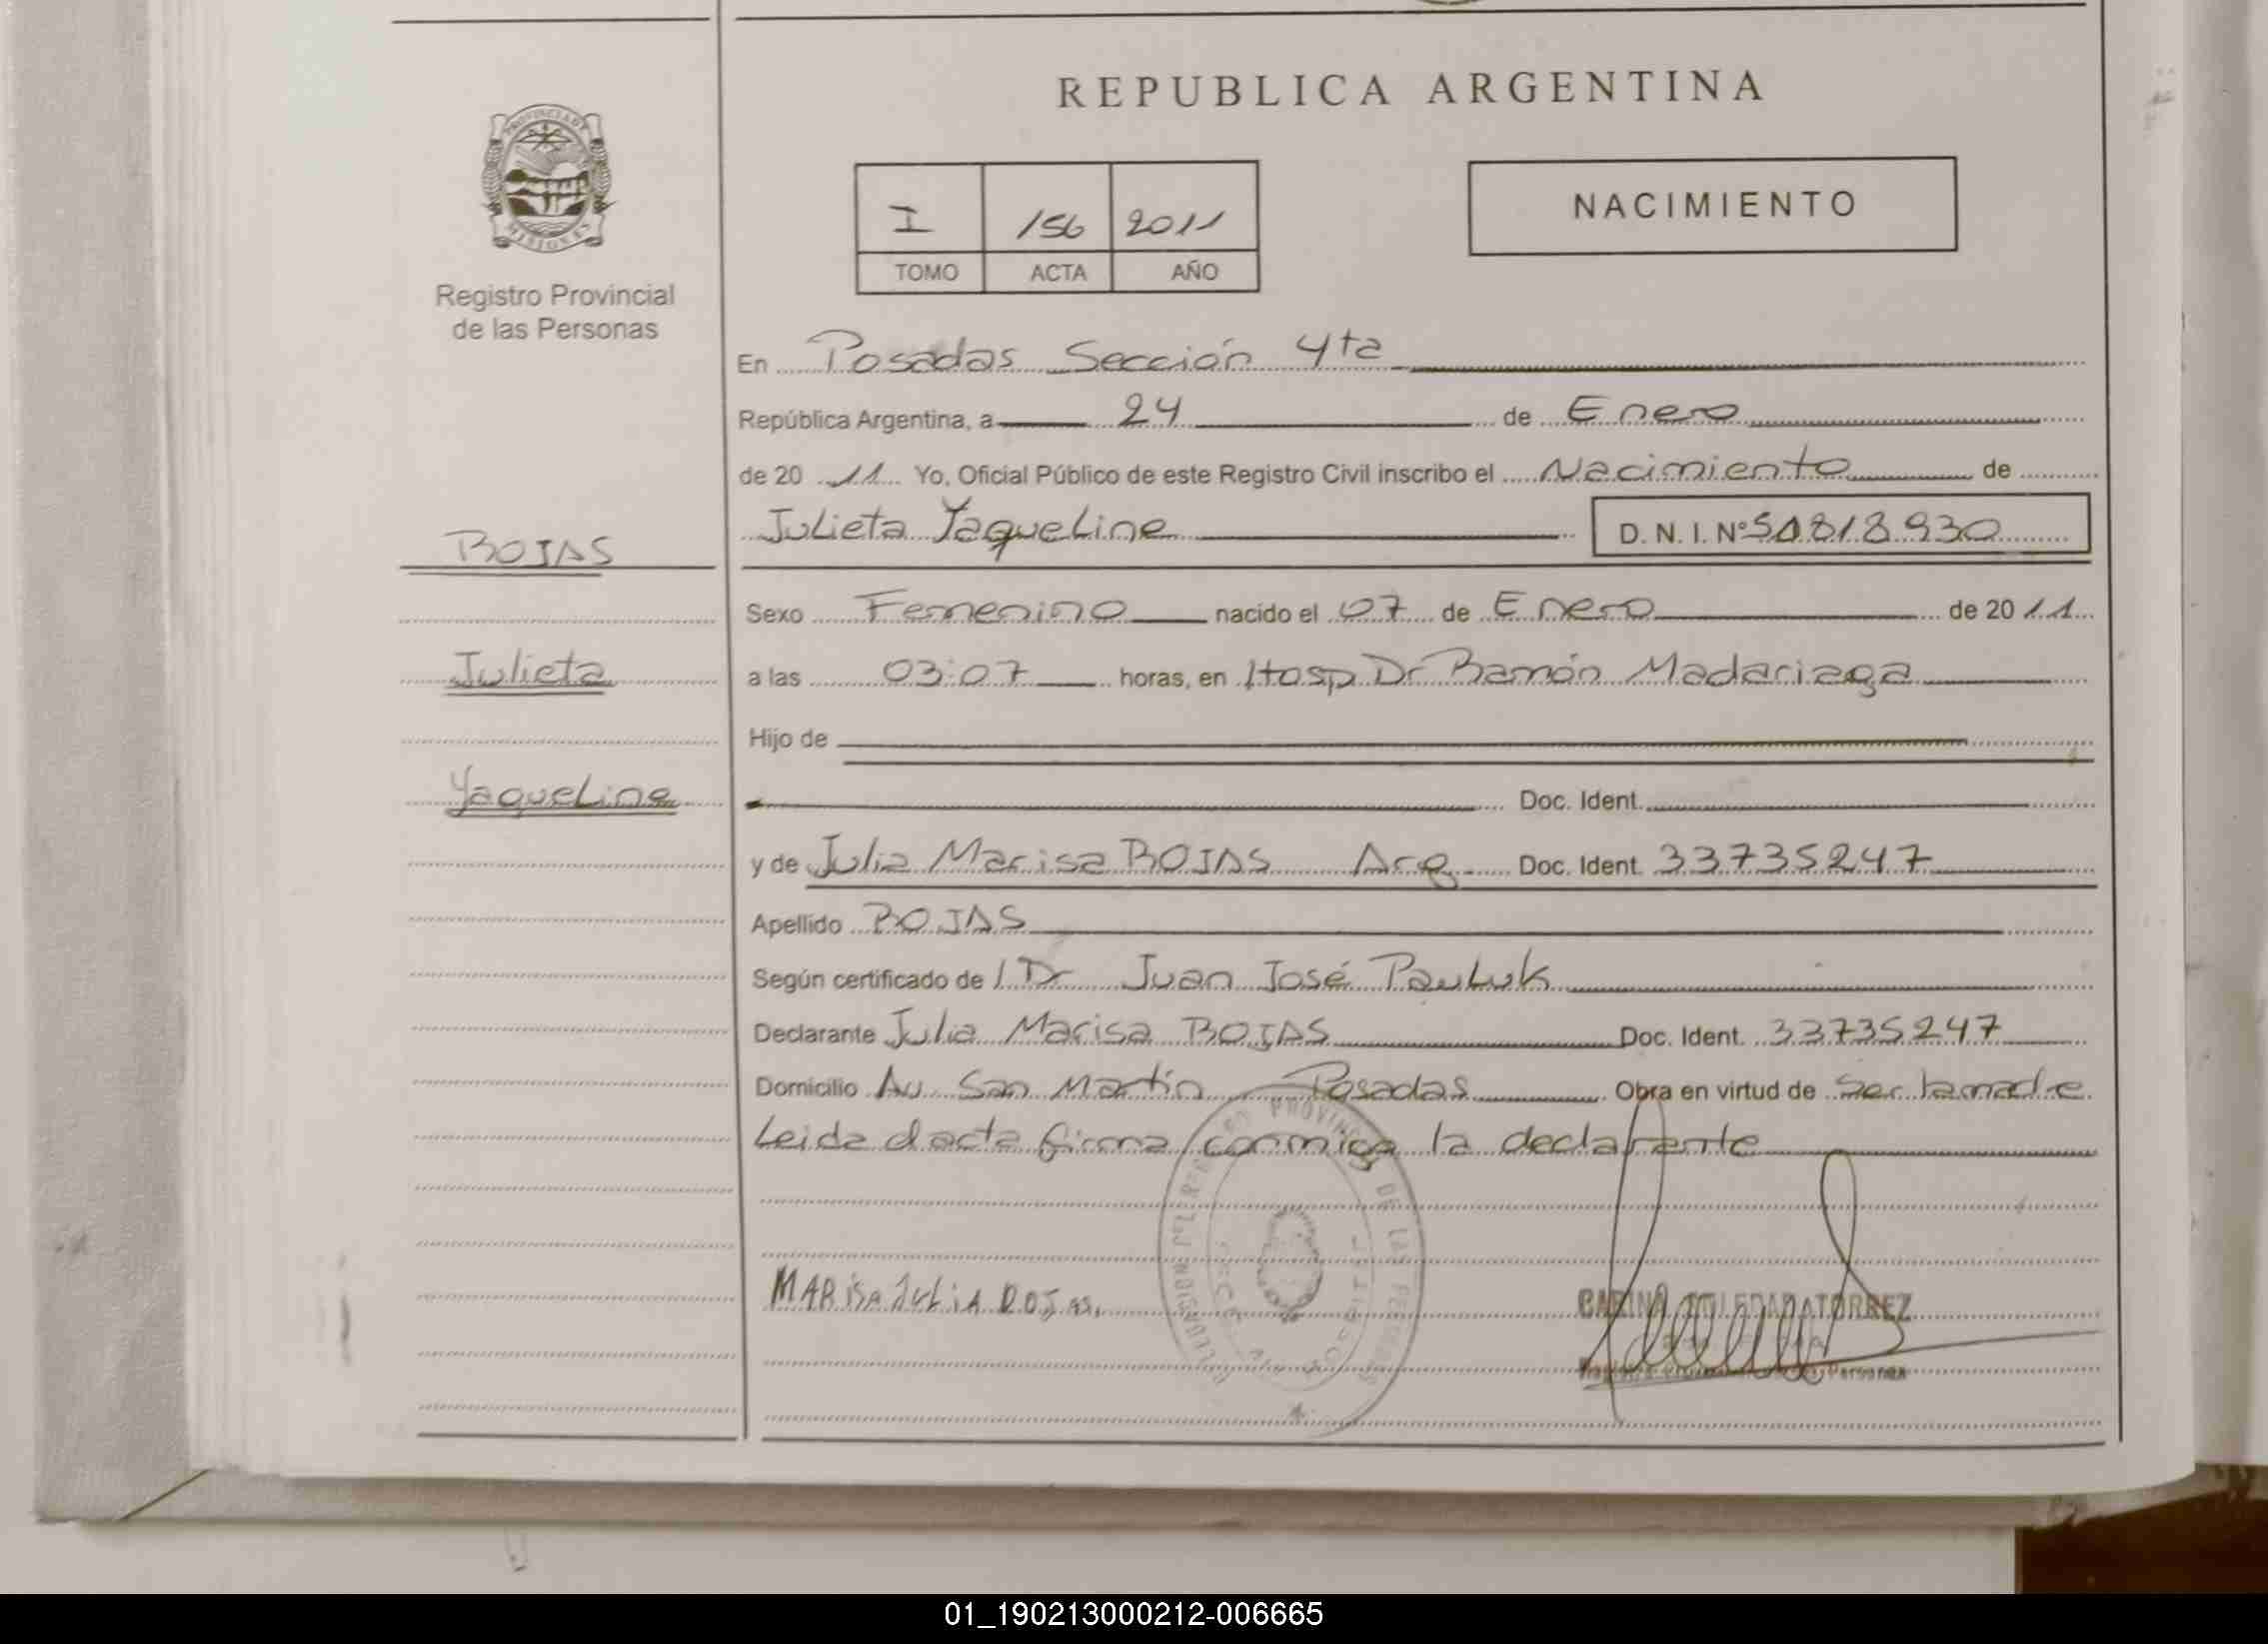 REPUBLICA ARGENTINA
PROVINCIA DE
MISIONES
Registro Provincial
de las Personas
I 156 2011
TOMO ACTA AÑO
NACIMIENTO
En Posadas Sección 4ta
República Argentina, a 24 de Enero
de 20 11 Yo, Oficial Público de este Registro Civil inscribo el Nacimiento de
Julieta Yaqueline D. N. I. Nº 50818930
ROJAS
Julieta
Yaqueline
Sexo Femenino nacido el 07 de Enero de 20 11
a las 03:07 horas, en Hosp Dr Ramón Madariaga
Hijo de
Doc. Ident.
y de Julia Marisa ROJAS Arg Doc. Ident. 33735247
Apellido ROJAS
Según certificado de l Dr Juan José Pauluk
Declarante Julia Marisa ROJAS Doc. Ident. 33735247
Domicilio Av San Martín Posadas Obra en virtud de ser la madre
Leida el acta firma conmigo la declarante
PROVINCIAL DE LAS PERSONAS
MARISA JULIA ROJAS.
CARINA SOLEDAD TORREZ
01_190213000212-006665